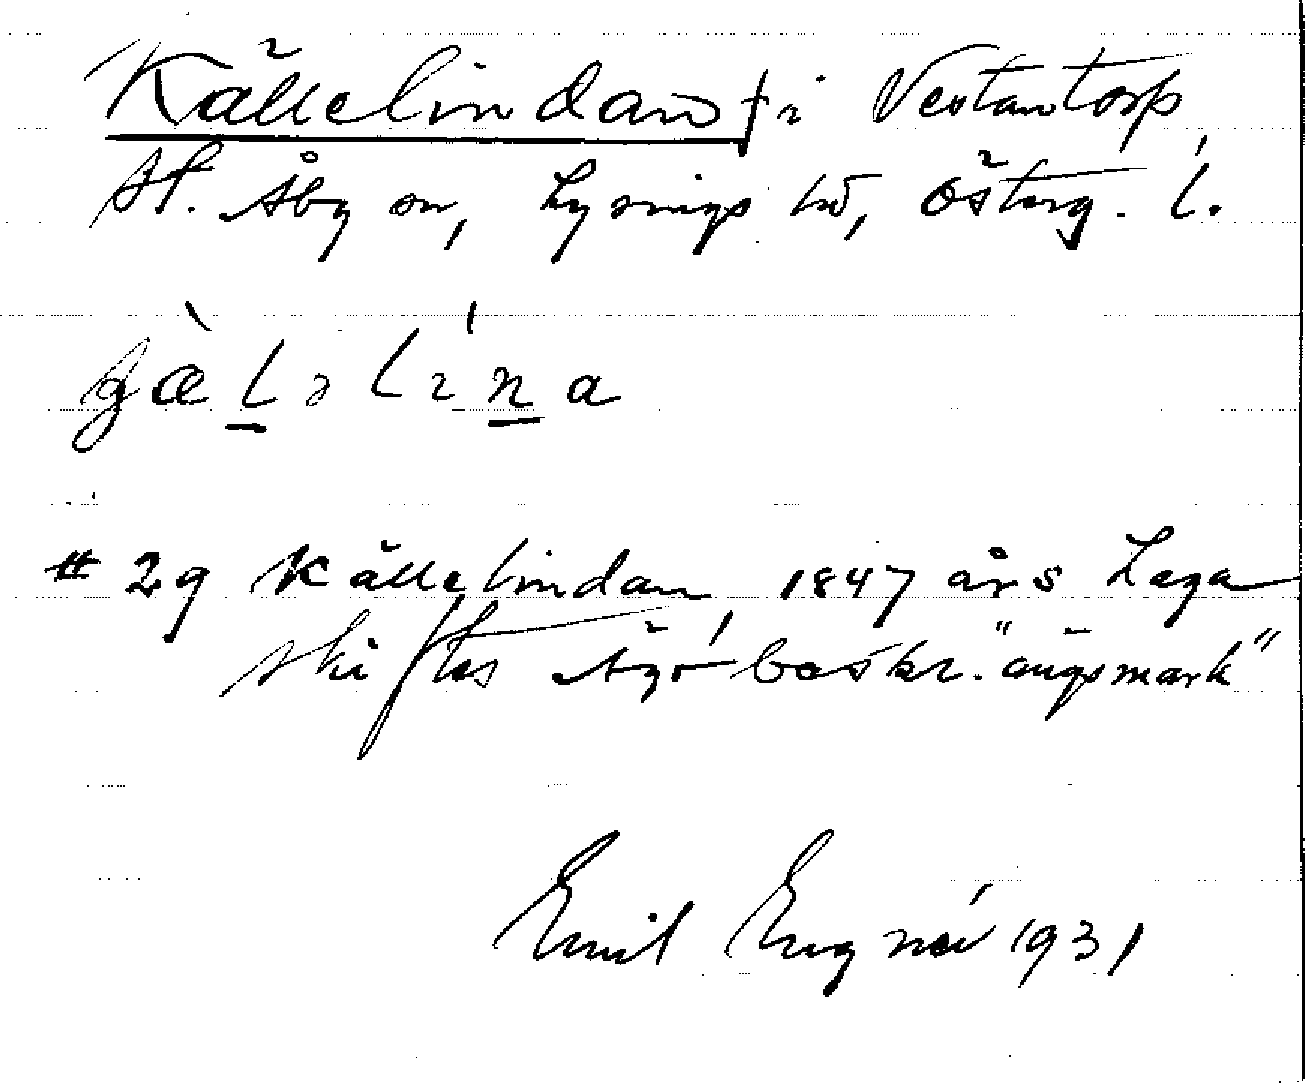 Källelindan † i Vestantorp,
St. Åby sn, Lysings hd, Österg. l.
gæ̀lǝlína
# 29 Källelindan, 1847 års Laga
skiftes ägobeskr. "ängsmark"
Emil 1931